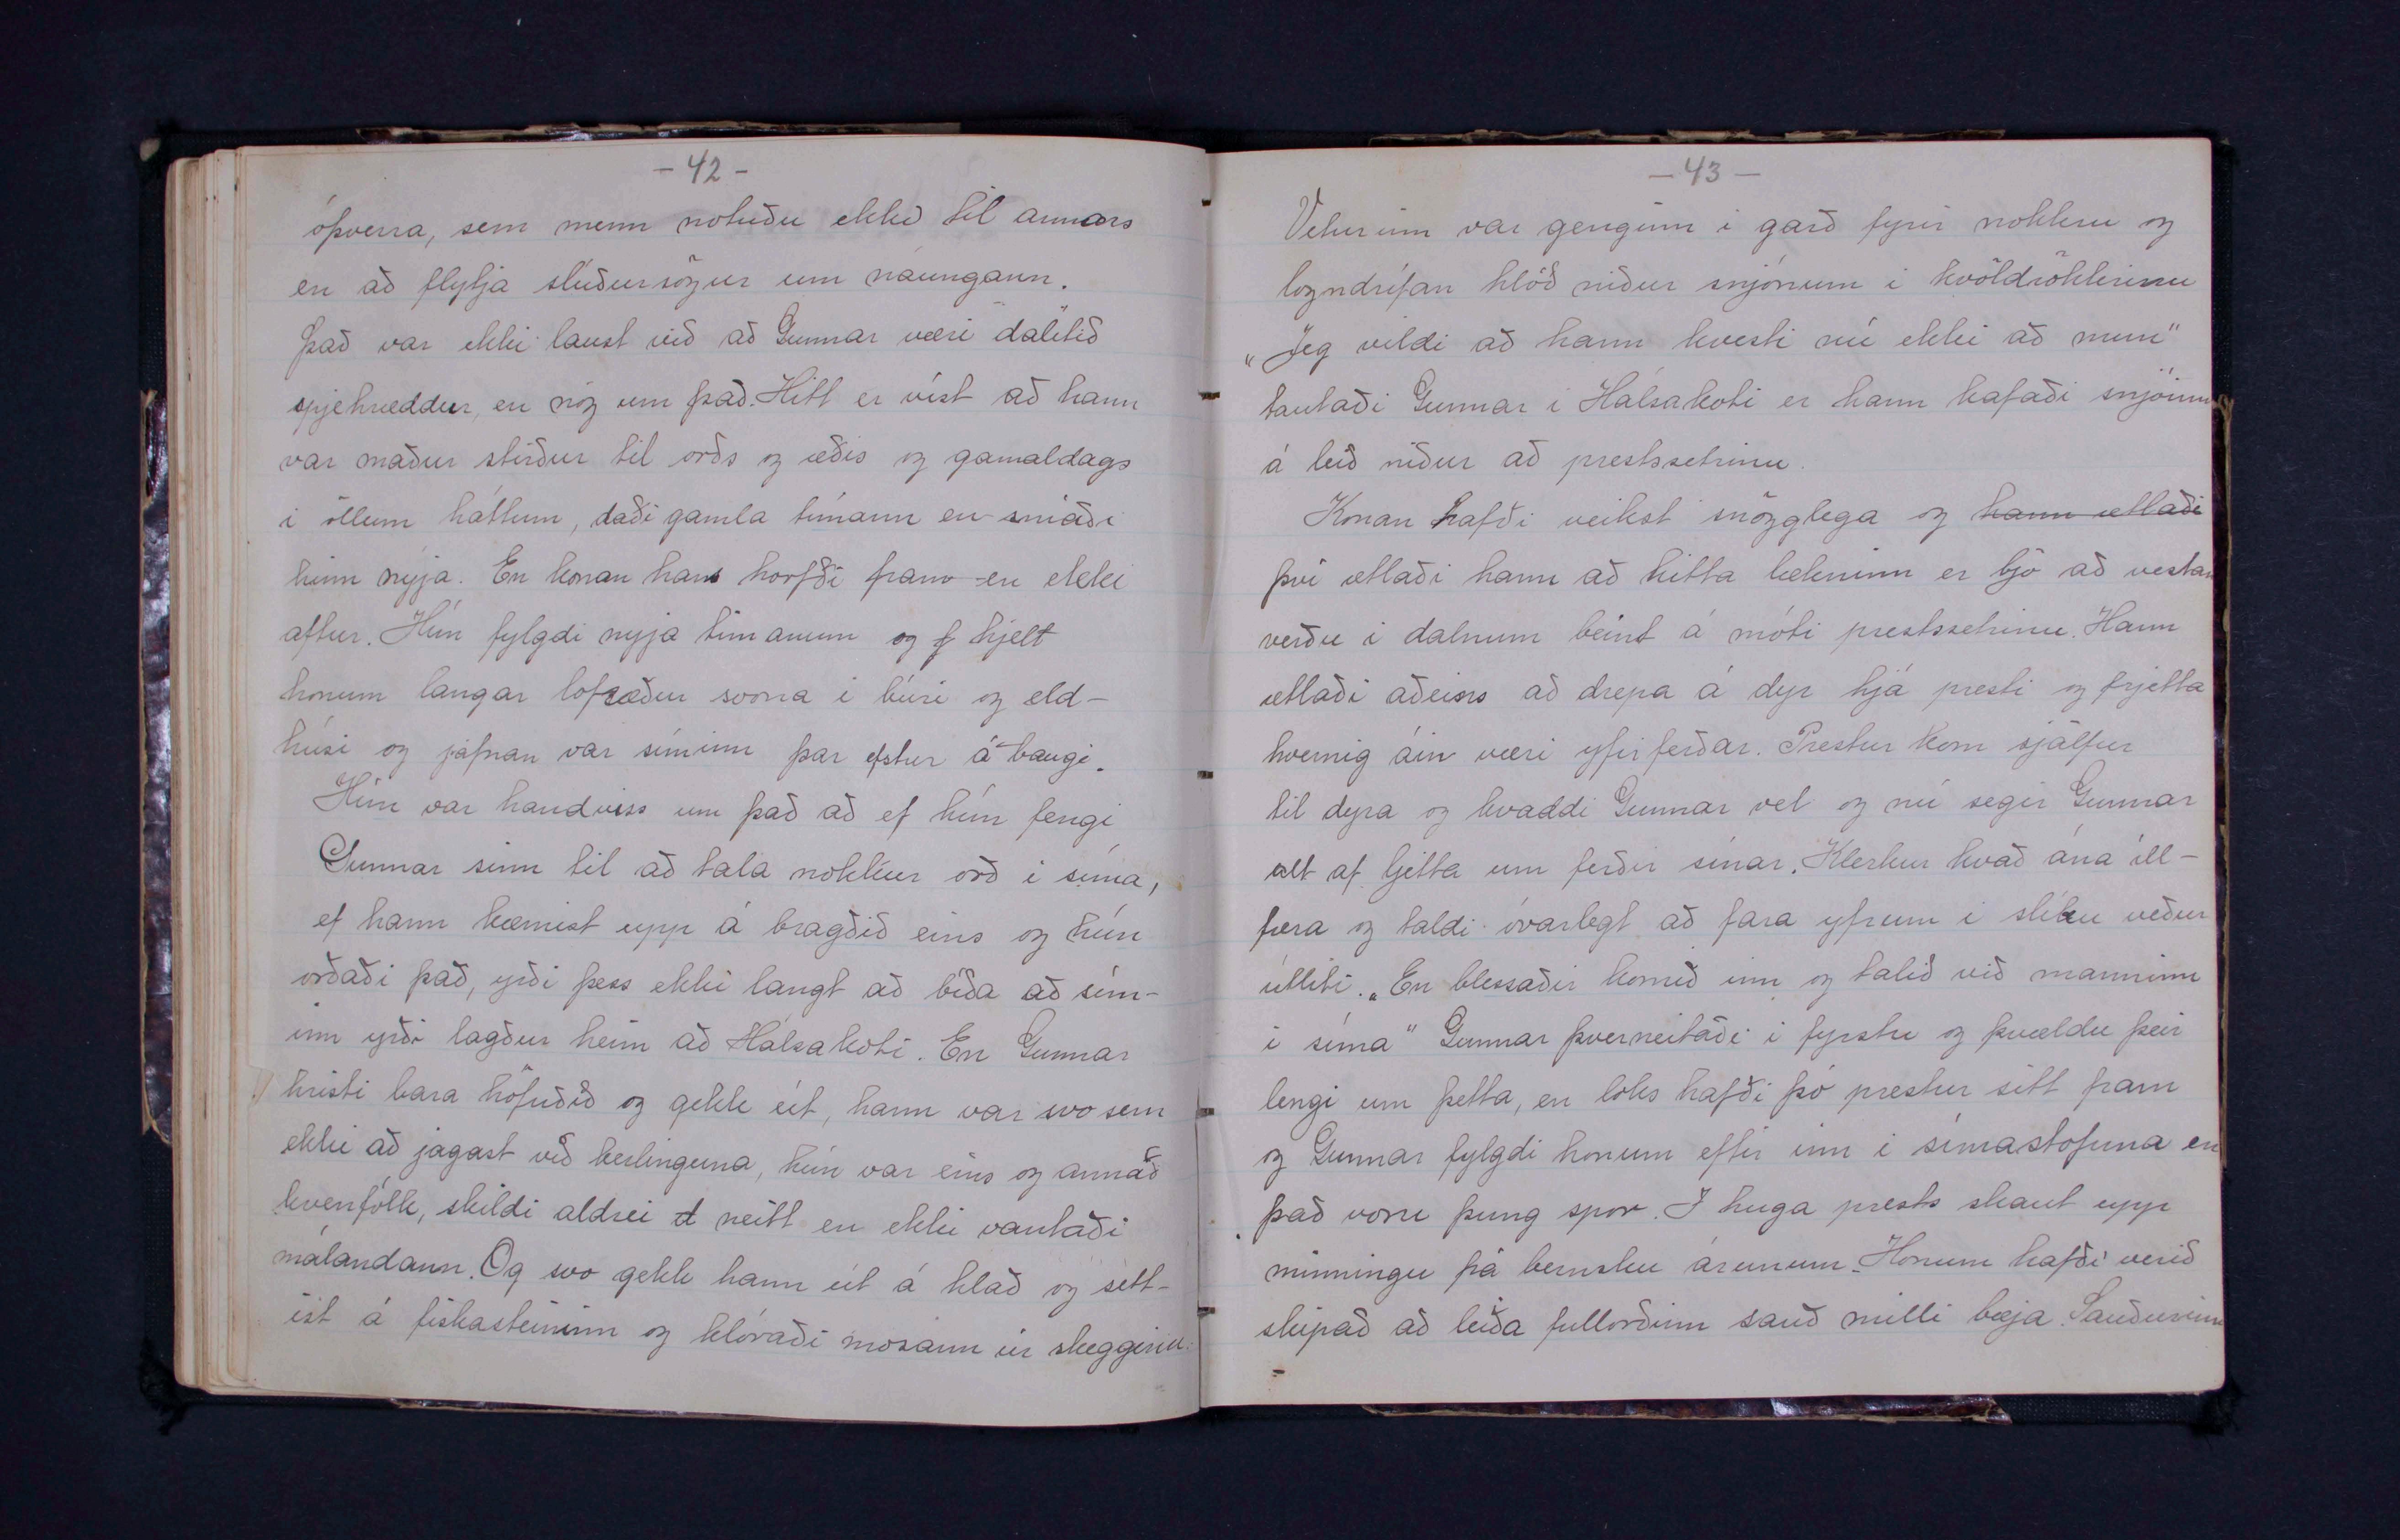 - 42 -
óþverra, sem menn notuðu ekki til annars
en að flytja slúðursögur um náungann.
Það var ekki laust við að Gunnar væri dálítið
spjehræddur, en nóg um það. Hitt er víst að hann
var maður stirður til orðs og æðis og gamaldags
í öllum háttum, dáði gamla tímann en smáði
hinn nýja. En konan hans horfði fram en ekki
aftur. Hún fylgdi nyja timanum og hjelt
honum langar lofræður svona í búri og eld-
húsi og jafnan var síminn þar efstur á baugi.
Hún var handviss um það að ef hún fengi
Gunnar sinn til að tala nokkur orð í síma,
ef hann kæmist upp á bragðið eins og hún
orðaði það, yrði þess ekki langt að bíða að sím-
inn yrði lagður heim að Hálsakoti. En Gunnar
hristi bara höfuðið og gekk út, hann var svo sem
ekki að jagast við kerlinguna, hún var eins og annað
kvenfólk, skildi aldrei neitt en ekki vantaði
málandann. Og svo gekk hann út á hlað og sett-
ist á fiskasteininn og klóraði mosann úr skegginu.
- 43 -
Veturinn var genginn í garð fyrir nokkru og
logndrífan hlóð niður snjónum í kvöldrökkrinu
„Jeg vildi að hann hvesti nú ekki að mun"
tautaði Gunnar í Hálsakoti er hann kafaði snjóinn
á leið niður að prestssetrinu.
Konan hafði veikst snögglega og hann ætlaði
því ætlaði hann að hitta lækninn er bjó að vestan
verðu í dalnum beint á móti prestssetrinu. Hann
ætlaði aðeins að drepa á dyr hjá presti og frjetta
hvernig áin væri yfirferðar. Prestur kom sjálfur
til dyra og kvaddi Gunnar vel og nú segir Gunnar
alt af ljetta um ferðir sínar. Klerkur kvað ána ill-
færa og taldi óvarlegt að fara yfrum í slíku veður
útliti. „En blessaðir komið inn og talið við manninn
í síma" Gunnar þverneitaði í fyrstu og þvældu þeir
lengi um þetta, en loks hafði þó prestur sitt fram
og Gunnar fylgdi honum eftir inn í símastofuna en
það voru þung spor. Í huga prests skaut upp
minningu frá bernsku árunum. Honum hafði verið
skipað að leiða fullorðinn sauð milli bæja. Sauðurinn